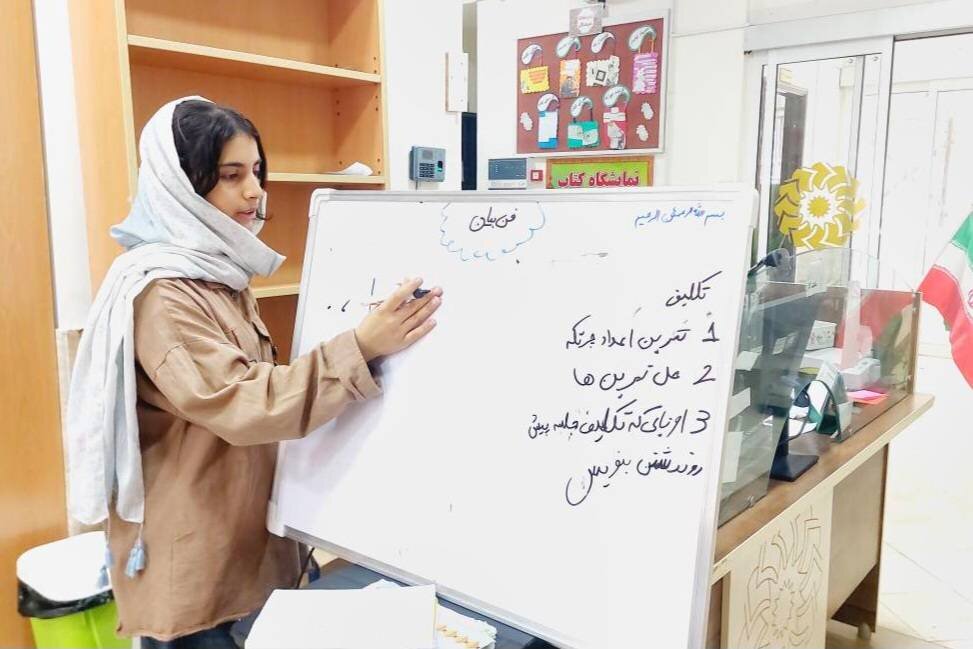 نمایشگاه کتاب
فن بیان
بسم الله الرحمن الرحیم
تکلیف
1 تمرین اعداد چرتکه
2 حل تمرین ها
3 که تکلیف جلسه پیش
رو ننوشتن بنویسن